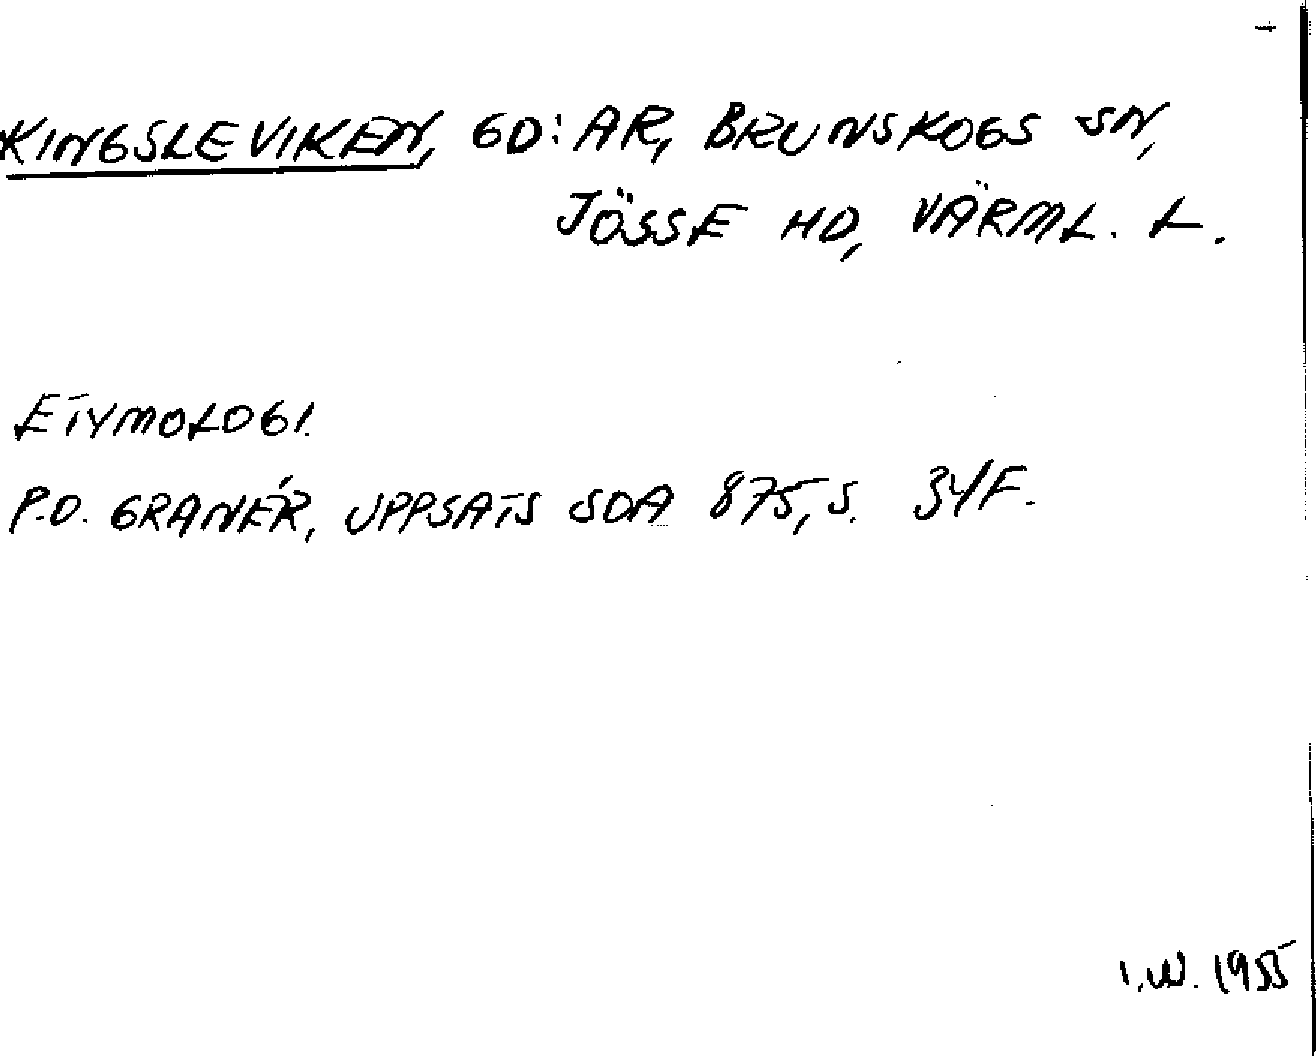 KINGSLEVIKEN, GD:AR, BRUNSKOGS SN,
JÖSSE HD, VÄRML. L.
ETYMOLOGI.
P.O. GRANÉR, UPPSATS SOA 875, S. 34F.
I.W. 1955